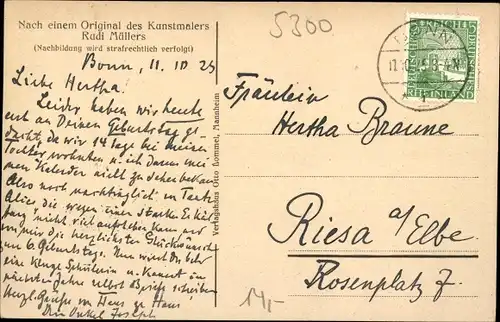 Nach einem Original des Kunstmalers
Rudi Müllers
(Nachbildung wird strafrechtlich verfolgt)
5300
Bonn, 11. 10 25
Liebe Hertha.
Leider haben wir heute
erst an Deinen Geburtstag ge-
dacht, da wir 14 Tage bei meiner
Tochter wohnten u. ich daran mei-
nen Kalender nicht zu sehen bekam
Also noch nachträglich
Alice, die wegen einer starken Erkäl-
tung nicht viel ausrichten kann und
von mir die herzlichsten Glückwünsche
zum 6. Geburtstage. Nun wirst Du bald
eine Schülerin u. kannst im
nächsten Jahre selbst Briefe schreiben
Herzl. Grüße von Haus zu Haus
Dein Onkel Joseph
Verlagshaus Otto Lommel, Mannheim
BONN
DEUTSCHES REICH
RHEINLAND
5
Fräulein
Hertha Braune
Riesa a/Elbe
Rosenplatz 7.
14,-